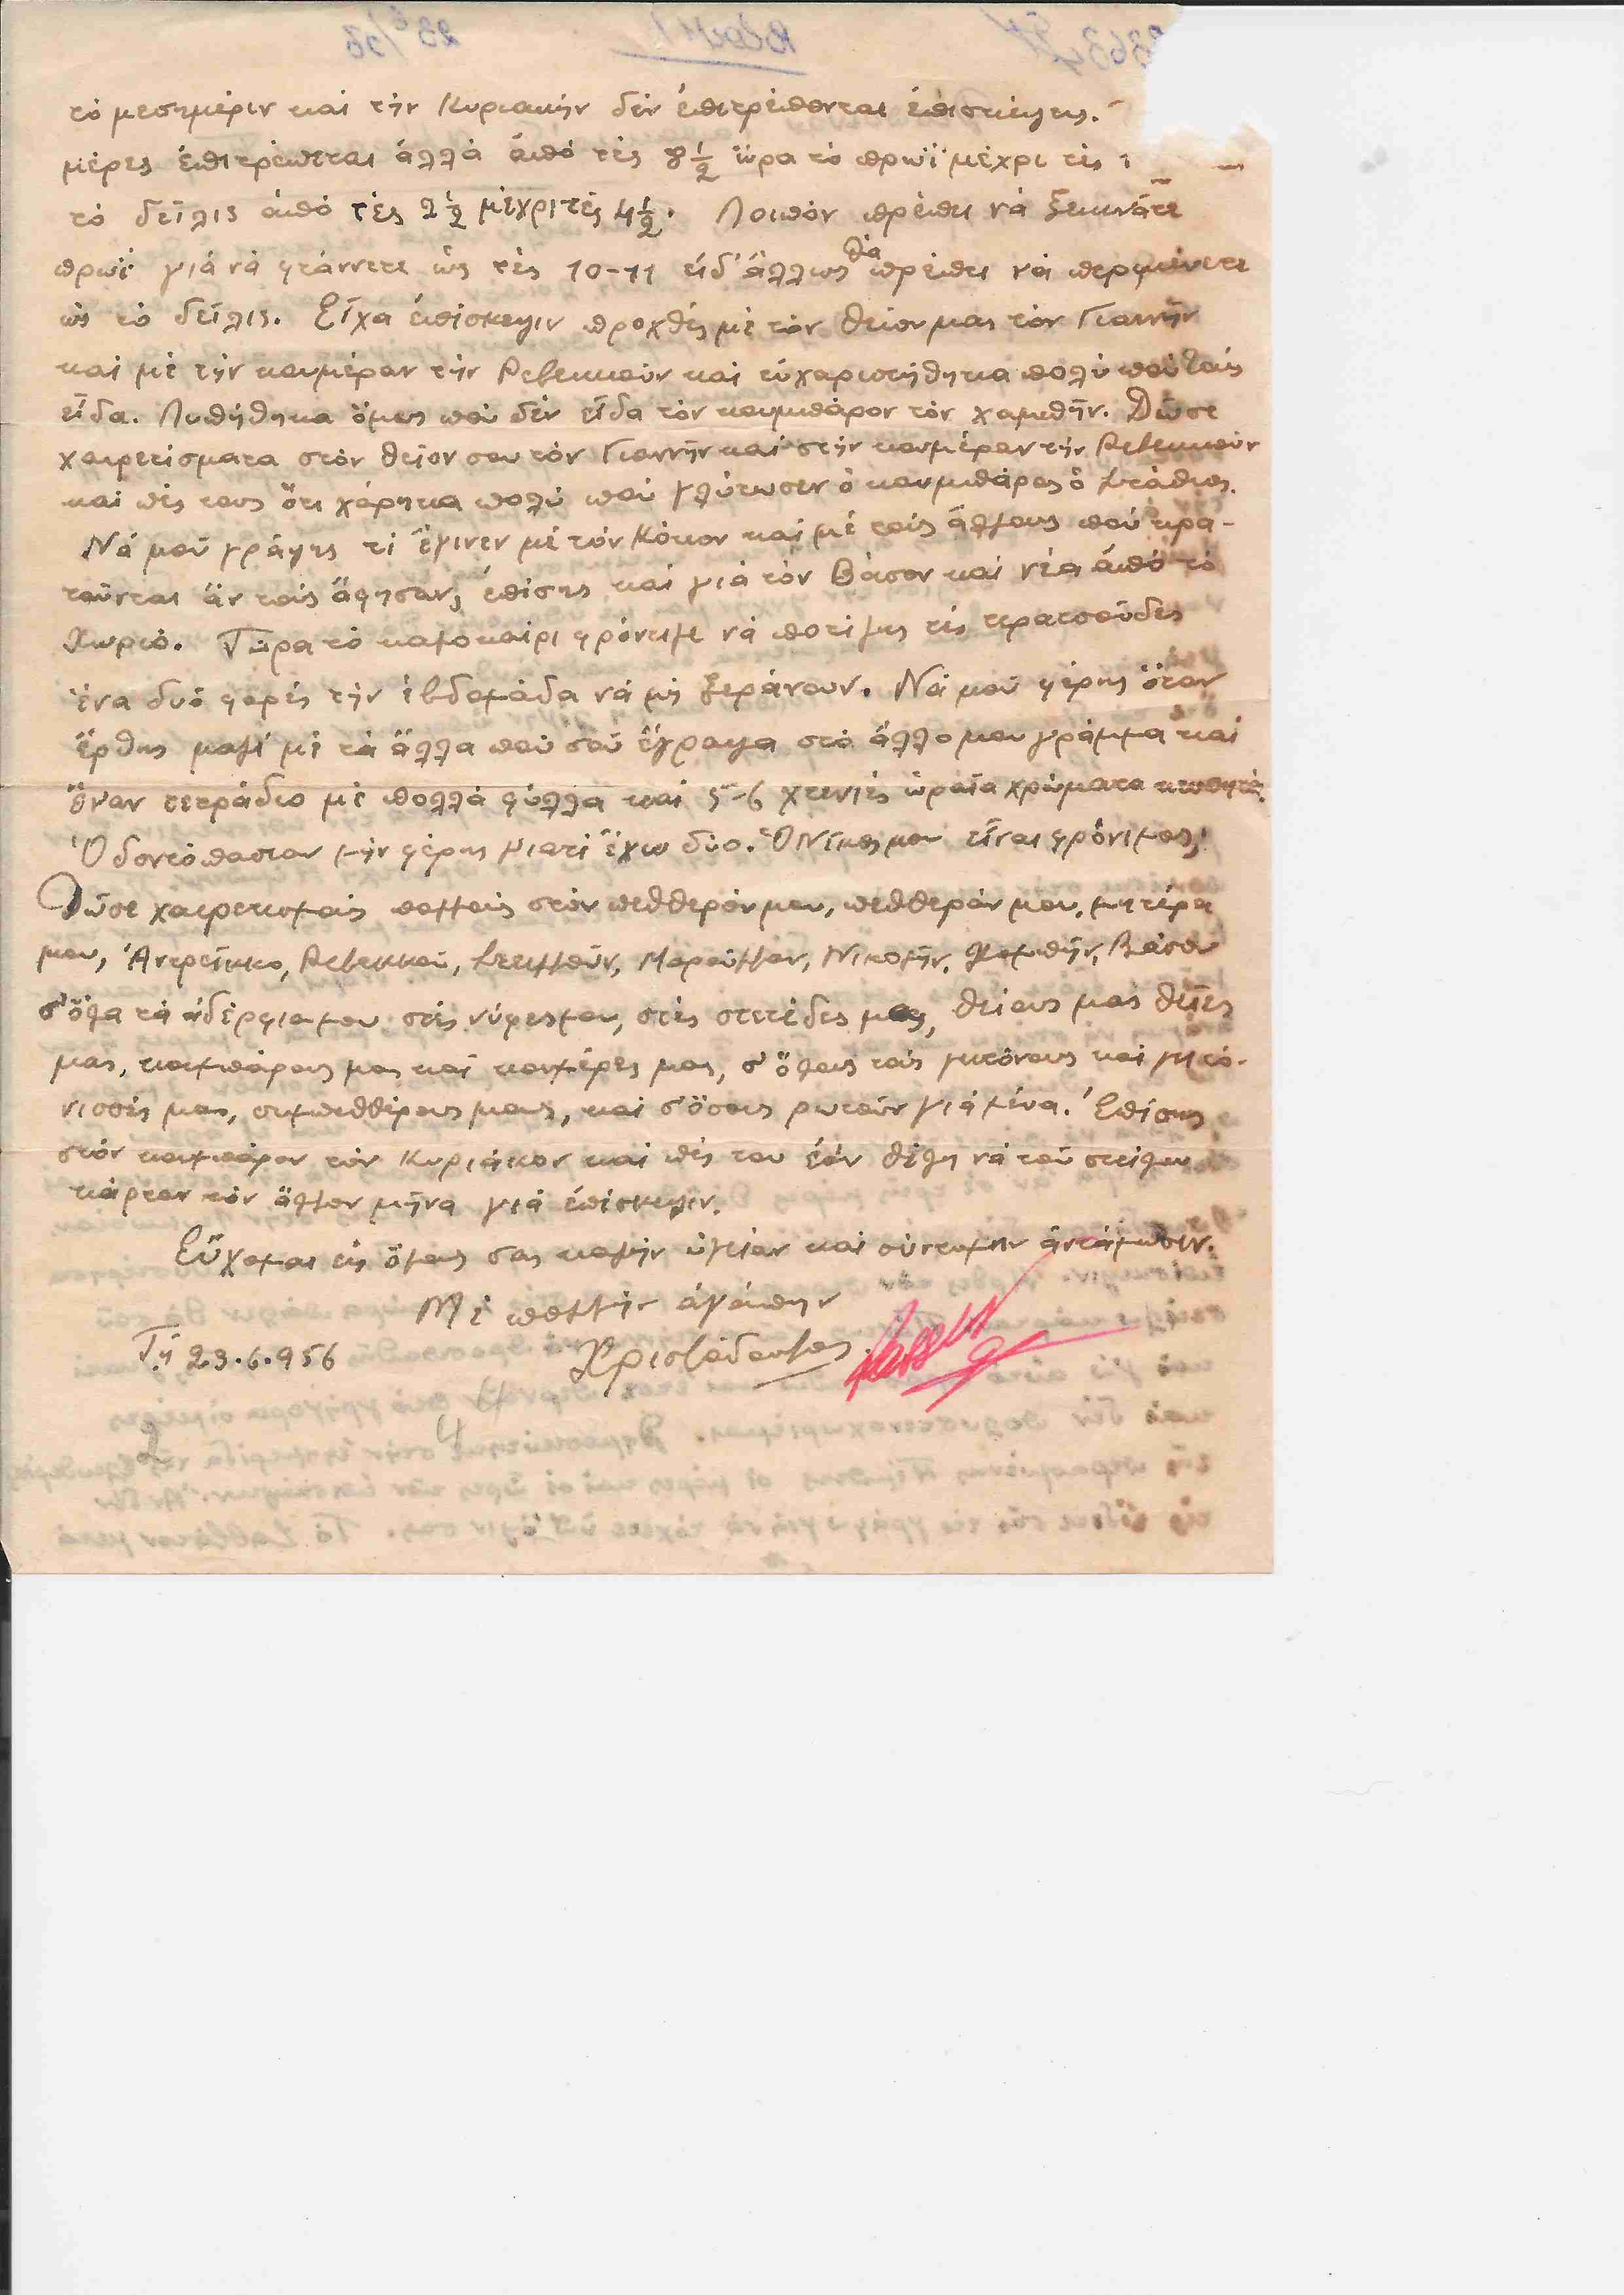 τό μεσημέριν καί τήν Κυριακήν δέν ἐπιτρέπονται ἐπισκέψεις.
μέρες ἐπιτρέπεται ἀλλά ἀπό τές 8½ ὥρα τό πρωΐ μέχρι τές
τό δεῖλις ἀπό τές 2½ μέχρι τές 4½. Λοιπόν πρέπει νά ξεκινᾶτε
πρωΐ γιά νά φτάννετε ὥς τές 10-11 εἰδ' ἄλλως θά πρέπει νά περιμένετε
ὥς τό δεῖλις. Εἶχα ἐπίσκεψιν προχθές μέ τόν θεῖον μας τόν Γιαννῆν
καί μέ τήν κουμέραν τήν Ρεβεκκούν καί εὐχαριστήθηκα πολύ πού τούς
εἶδα. Λυπήθηκα ὅμως πού δέν εἶδα τόν κουμπάρον τόν χαμπῆν. Δῶσε
χαιρετίσματα στόν θεῖον σου τόν Γιαννῆν καί στήν κουμέραν τήν Ρεβεκκούν
καί πές τους ὅτι χάρηκα πολύ πού γλύτωσεν ὁ κουμπάρος ὁ Στάθιος.
Νά μοῦ γράψης τί ἔγινεν μέ τόν Κόκον καί μέ τούς ἄλλους πού κρα-
τοῦνται ἄν τούς ἄφησαν, ἐπίσης καί γιά τόν Βάσον καί νέα ἀπό τό
χωριό. Τώρα τό καλοκαίρι φρόντιζε νά ποτίζης τές τερατσοῦδες
ἕνα δυό φορές τήν ἑβδομάδα νά μή ξεράνουν. Νά μοῦ φέρης ὅταν
ἔρθης μαζί μέ τά ἄλλα πού σοῦ ἔγραψα στό ἄλλο μου γράμμα καί
ἕναν τετράδιο μέ πολλά φύλλα καί 5-6 χτενιές ὡραῖα χρώματα
Ὀδοντόπασταν μήν φέρης γιατί ἔχω δύο. Ὁ Νῖκος μου εἶναι φρόνιμος;
Δῶσε χαιρετισμούς πολλούς στόν πεθθερόν μου, πεθθεράν μου, μητέρα
μου, Ἀντρεῖκκο, Ρεβεκκού, Στελλούν, Μαρούλλαν, Νικολῆν, Χαμπῆν, Βάσον
σ' ὅλα τά ἀδέρφια μου στές νύφες μου, στές στετέδες μας, θείους μας θεῖες
μας, κουμπάρους μας καί κουμέρες μας, σ' ὅλους τούς γειτόνους καί γειτό-
νισσές μας, συμπεθθέρους μας, καί σ' ὅσους ρωτοῦν γιά μένα. Ἐπίσης
στόν κουμπάρον τόν Κυριάκον καί πές του ἐάν θέλη νά τοῦ στείλω
κάρταν τόν ἄλλον μῆνα γιά ἐπίσκεψιν.
Εὔχομαι εἰς ὅλους σας καλήν ὑγείαν καί σύντομην ἀντάμωσιν.
Μέ πολλήν ἀγάπην
Τῇ 23.6.956 Χριστόδουλος